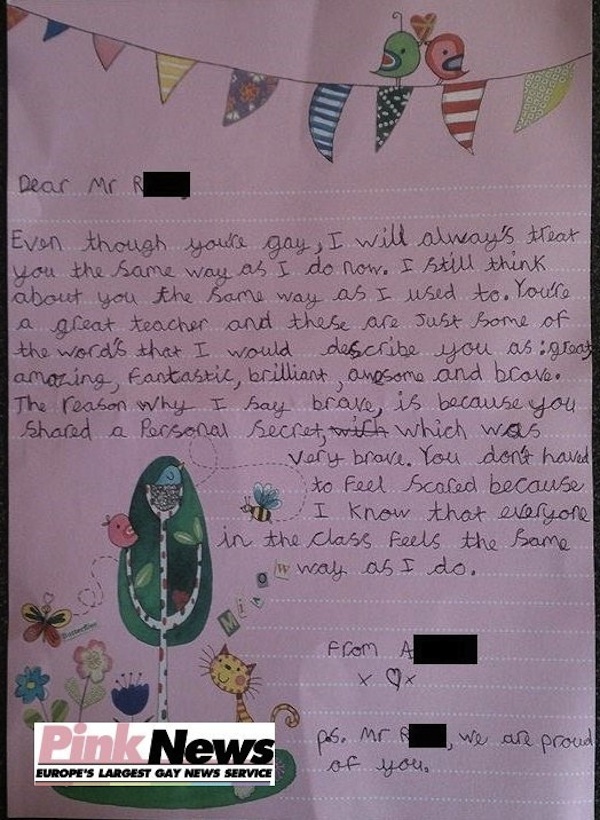 Dear Mr R
Even though you're gay, I will always's treat
you the same way as I do now. I still think
about you the same way as I used to. You're
a great teacher and these are just some of
the word's that I would describe you as: great,
amazing, fantastic, brilliant, awesome and brave.
The reason why I say brave, is because you
shared a Personal secret, with which was
very brave. You don't haved
to feel scared because
I know that everyone
in the class feels the same
way as I do.
Miaow
Butterflies
From A
x ♡ x
ps. Mr R, we are proud
of you.
PinkNews
EUROPE'S LARGEST GAY NEWS SERVICE